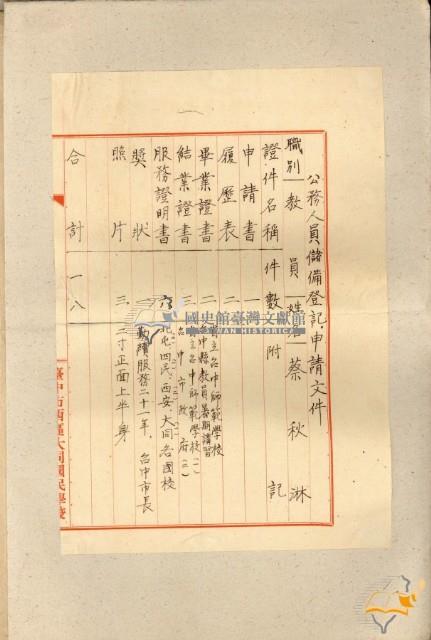 公務人員儲備登記申請文件
職別 教員 姓名 蔡秋淋
證件名稱 件數 附記
申請書 一
履歷表 二
畢業證書 二 省立台中師範學校
台中縣教員暑期講習
結業證書 三 省立台中師範學校(一)
台中市政府(二)
服務證明書 六 北屯四民、西安、大同各國校
獎狀 一 勤績服務二十一年,台中市長
照片 三 二寸正面上半身
合計 一八
臺中市西區大同國民學校
國史館臺灣文獻館
TAIWAN HISTORICA